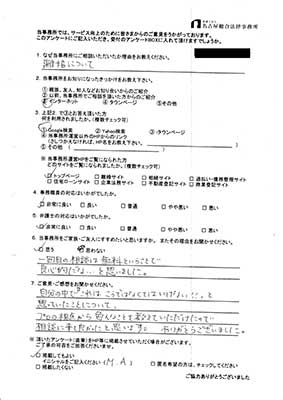 名古屋総合法律事務所
当事務所では、サービス向上のために皆さまからのご意見をうかがっております。
このアンケートにご記入いただき、受付のアンケートBOXに入れて頂けますでしょうか。
1. なぜ当事務所にご相談いただいたか理由をお教えください。
離婚について
2. 当事務所をお知りになったきっかけをお教え下さい。
①親族、友人、知人などお知り合いからのご紹介
②以前、当事務所でご相談を頂いた方からのご紹介
③インターネット ④タウンページ ⑤その他
3. 上記2. で③とお答え頂いた方
何を利用されましたか。(複数チェック可)
①Google検索 ②Yahoo検索 ③タウンページ
④当事務所運営以外のHPからのリンク
(さしつかえなければ、HP名をお教え下さい。)
⑤その他( )
※当事務所運営HPをご覧になられた方
どのサイトをご覧になられましたか。(複数チェック可)
トップページ 離婚サイト 相続サイト 過払い・債務整理サイト
住宅ローンサイト 企業法務サイト 不動産登記サイト 商業登記サイト
4. 事務職員の対応はいかがでしたか。
非常に良い 良い 普通 やや悪い 悪い
5. 弁護士の対応はいかがでしたか。
非常に良い 良い 普通 やや悪い 悪い
6. 当事務所をご家族・ご友人にすすめたいと思いますか。またその理由をお聞かせください。
思う 思わない
一回目の相談は無料ということで
良心的だなぁ…と思いました。
7. ご意見・ご感想をお聞かせください。
自分の中で"これは、こうではなくてはいけない"…と
思っていたことで
プロの視点から色んなことを教えていただけたので
相談に来て良かったと思います。ありがとうございました。
※頂いたアンケート(直筆)をHP等に掲載させていただく場合がございます。
ご了承の可否をご回答くださいませ。
掲載してもよい
イニシャルをご記入ください(M.A) 匿名希望の方は、チェックしてください
掲載したくない
ご協力ありがとうございました